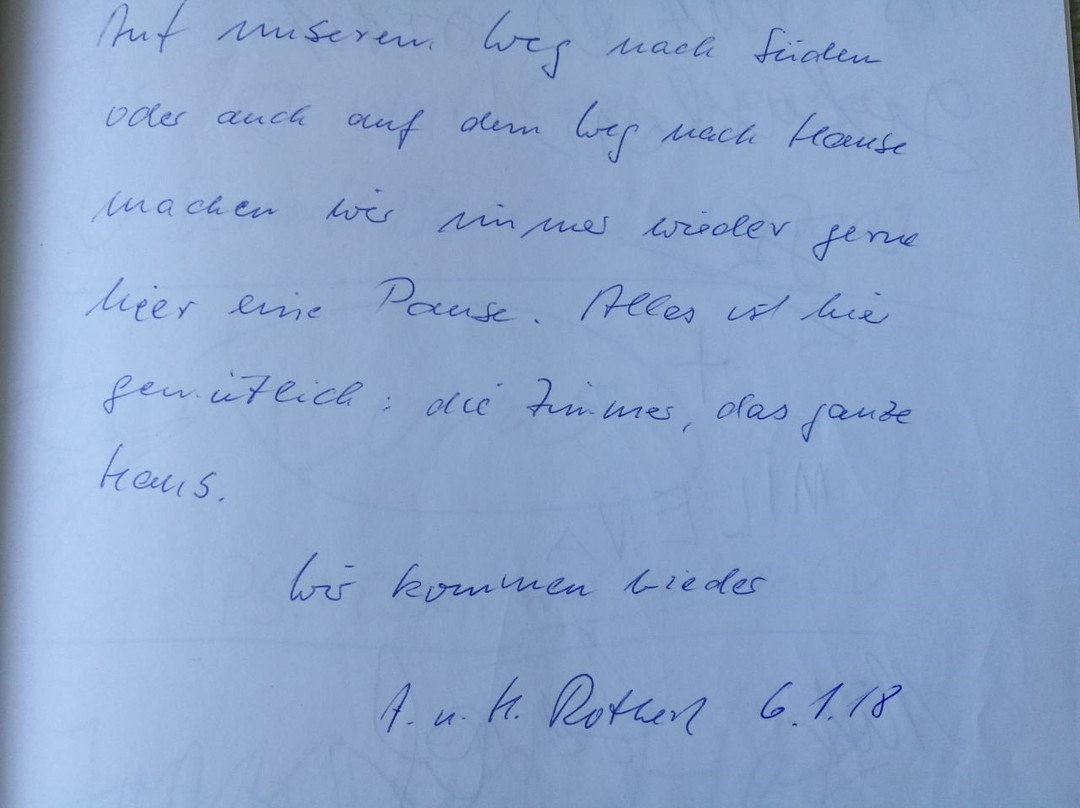 Auf unserem Weg nach Süden
oder auch auf dem Weg nach Hause
machen wir immer wieder gerne
hier eine Pause. Alles ist hier
gemütlich: die Zimmer, das ganze
Haus.
Wir kommen wieder
A. u. H. 6.1.18
MILENA